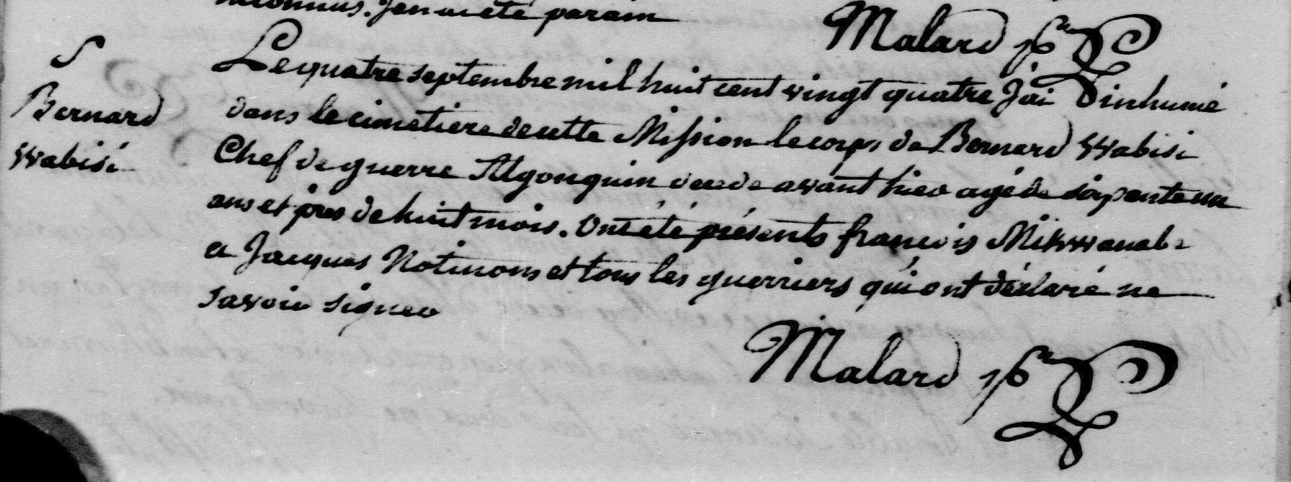 Malard ptr
S
Bernard
Wabisi
Le quatre septembre mil huit cent vingt quatre J'ai inhumé
dans le cimetiere de cette Mission le corps de Bernard Wabisi
Chef de guerre Algonquin decede avant hier agé de
ans et pres de huit mois. Ont été présents françois Mikwanabe
et Jacques Notinons et tous les guerriers qui ont déclaré ne
savoir signer
Malard ptr